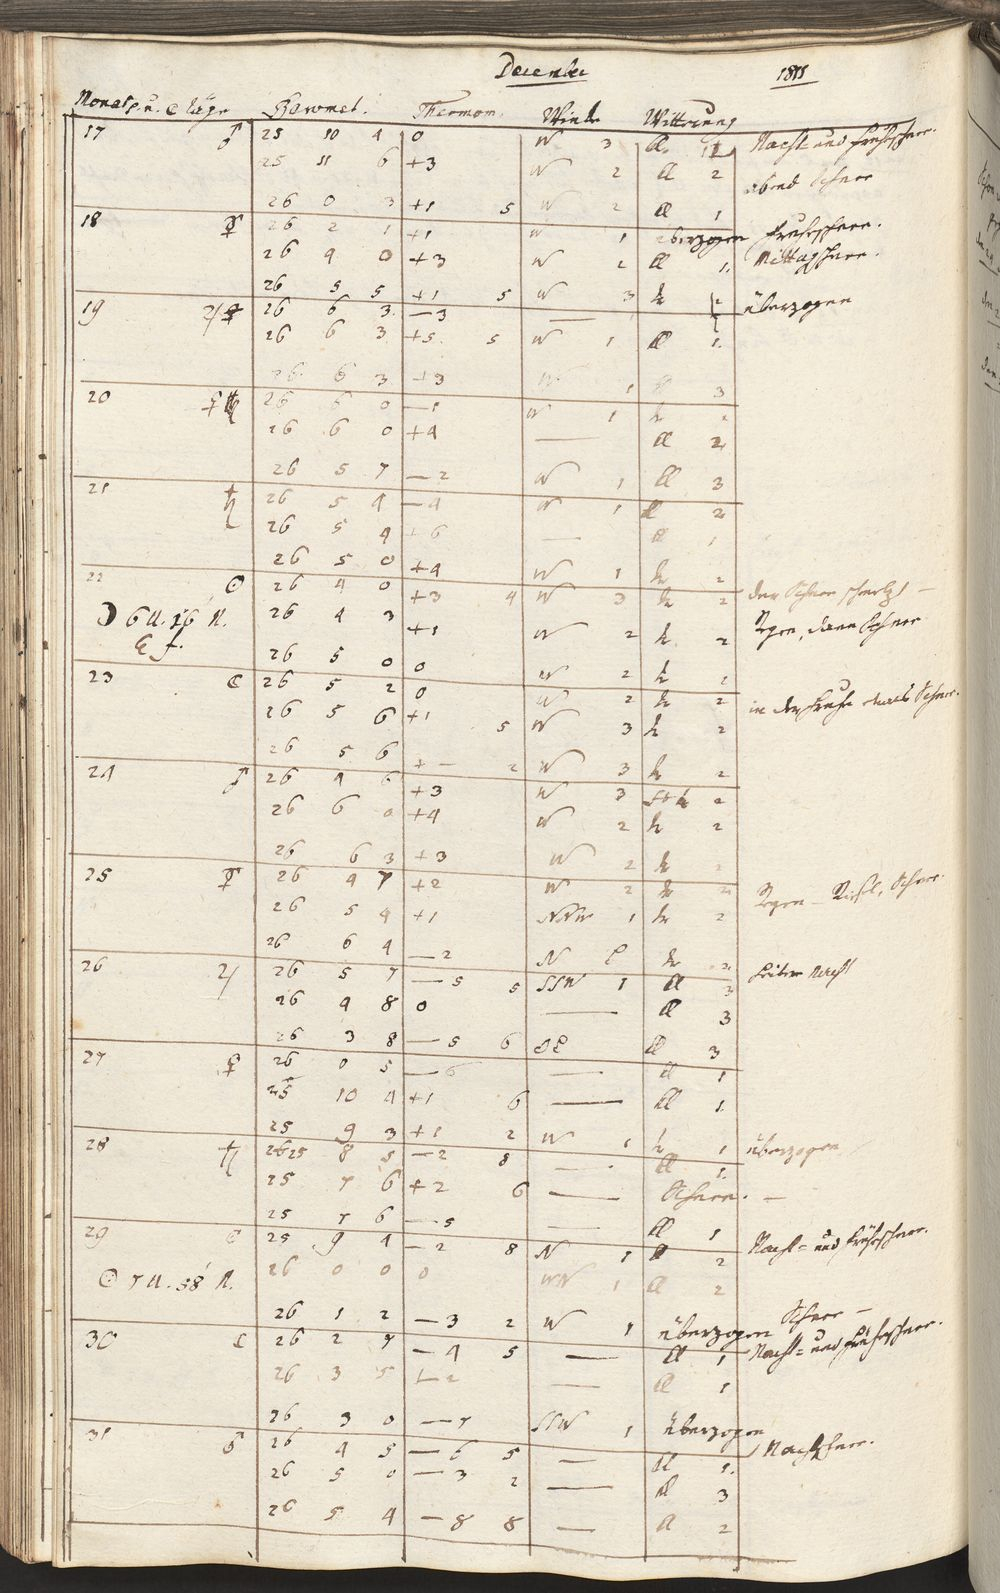 December 1811
Monats u. ☾ täge Baromet. Thermom. Winde Witterung
17 ♂ 25 10 4 0 W 3 Nacht und Früheschnee.
25 11 6 +3 W 2 2 abend Schnee
26 0 3 +1 5 W 2 1
18 ☿ 26 2 1 +1 W 1 überzogen Früheschnee.
26 4 0 +3 W 2 1. Mittagschnee.
26 5 5 +1 5 W 3 tr 2 überzogen
19 ♃ 26 6 3. —3 —
26 6 3 +5. 5 W 1 1.
26 6 3 +3 W 1 3
20 ♀ 26 6 0 —1 W 1 tr 2
26 6 0 +4 — 2
26 5 7 —2 W 1 3
21 ♄ 26 5 4 —4 W 1 2
26 5 4 +6 — 1
26 5 0 +4 W 1 tr 2
22 ☉ 26 4 0 +3 4 W 3 tr 2 der Schnee schmelzt —
☽ 6 U. 16 N. 26 4 3 +1 W 2 tr 2 Regen, dann Schnee
26 5 0 0 W 2 tr 2
23 ☾ 26 5 2 0 W 2 tr 2 in der Fruhe etwas Schnee.
26 5 6 +1 5 W 3 tr 2
26 5 6 + — 2 W 3 tr 2
24 ♂ 26 4 6 +3 W 3 2
26 6 0 +4 W 2 tr 2
26 6 3 +3 W 2 tr 2
25 ☿ 26 4 7 +2 W 2 tr 2 Regen — Riesel, Schnee.
26 5 4 +1 NNW 1 tr 2
26 6 4 —2 N tr 2
26 ♃ 26 5 7 —5 5 SSW 1 3 heitere Nacht
26 4 8 0 — 3
26 3 8 —5 6 3
27 ♀ 26 0 5 —6 — 1
25 10 4 +1 6 — 1.
25 9 3 +1 2 W 1 tr 1 überzogen
28 ♄ 25 8 5 —2 8 — 1.
25 7 6 +2 6 — Schnee. —
25 7 6 —5 — 1
29 25 9 4 —2 8 N 1 2 Nacht= und Früheschnee.
☉ 7 U. 58' N. 26 0 0 0 WN 1 2
26 1 2 —3 2 W 1 überzogen Schnee —
30 ☾ 26 2 7 —4 5 — 1 Nacht= und Früheschnee.
26 3 5 —2 — 1
26 3 0 —7 SSW 1 überzogen
31 ♂ 26 4 5 —6 5 — 1. Nachtschnee.
26 5 0 —3 2 — 3
26 5 4 —8 8 — 2